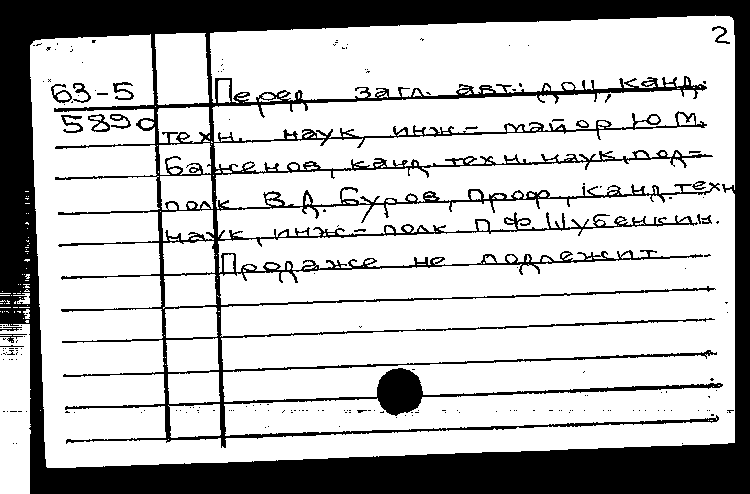 2
63-5 Перед загл. авт.: доц, канд.
5890 техн. наук, инж-майор Ю.М.
Баженов, канд. техн. наук, под-
полк В.Д. Буров, проф, канд. техн
наук, инж-полк П.Ф. Шубенкин.
Продаже не подлежит